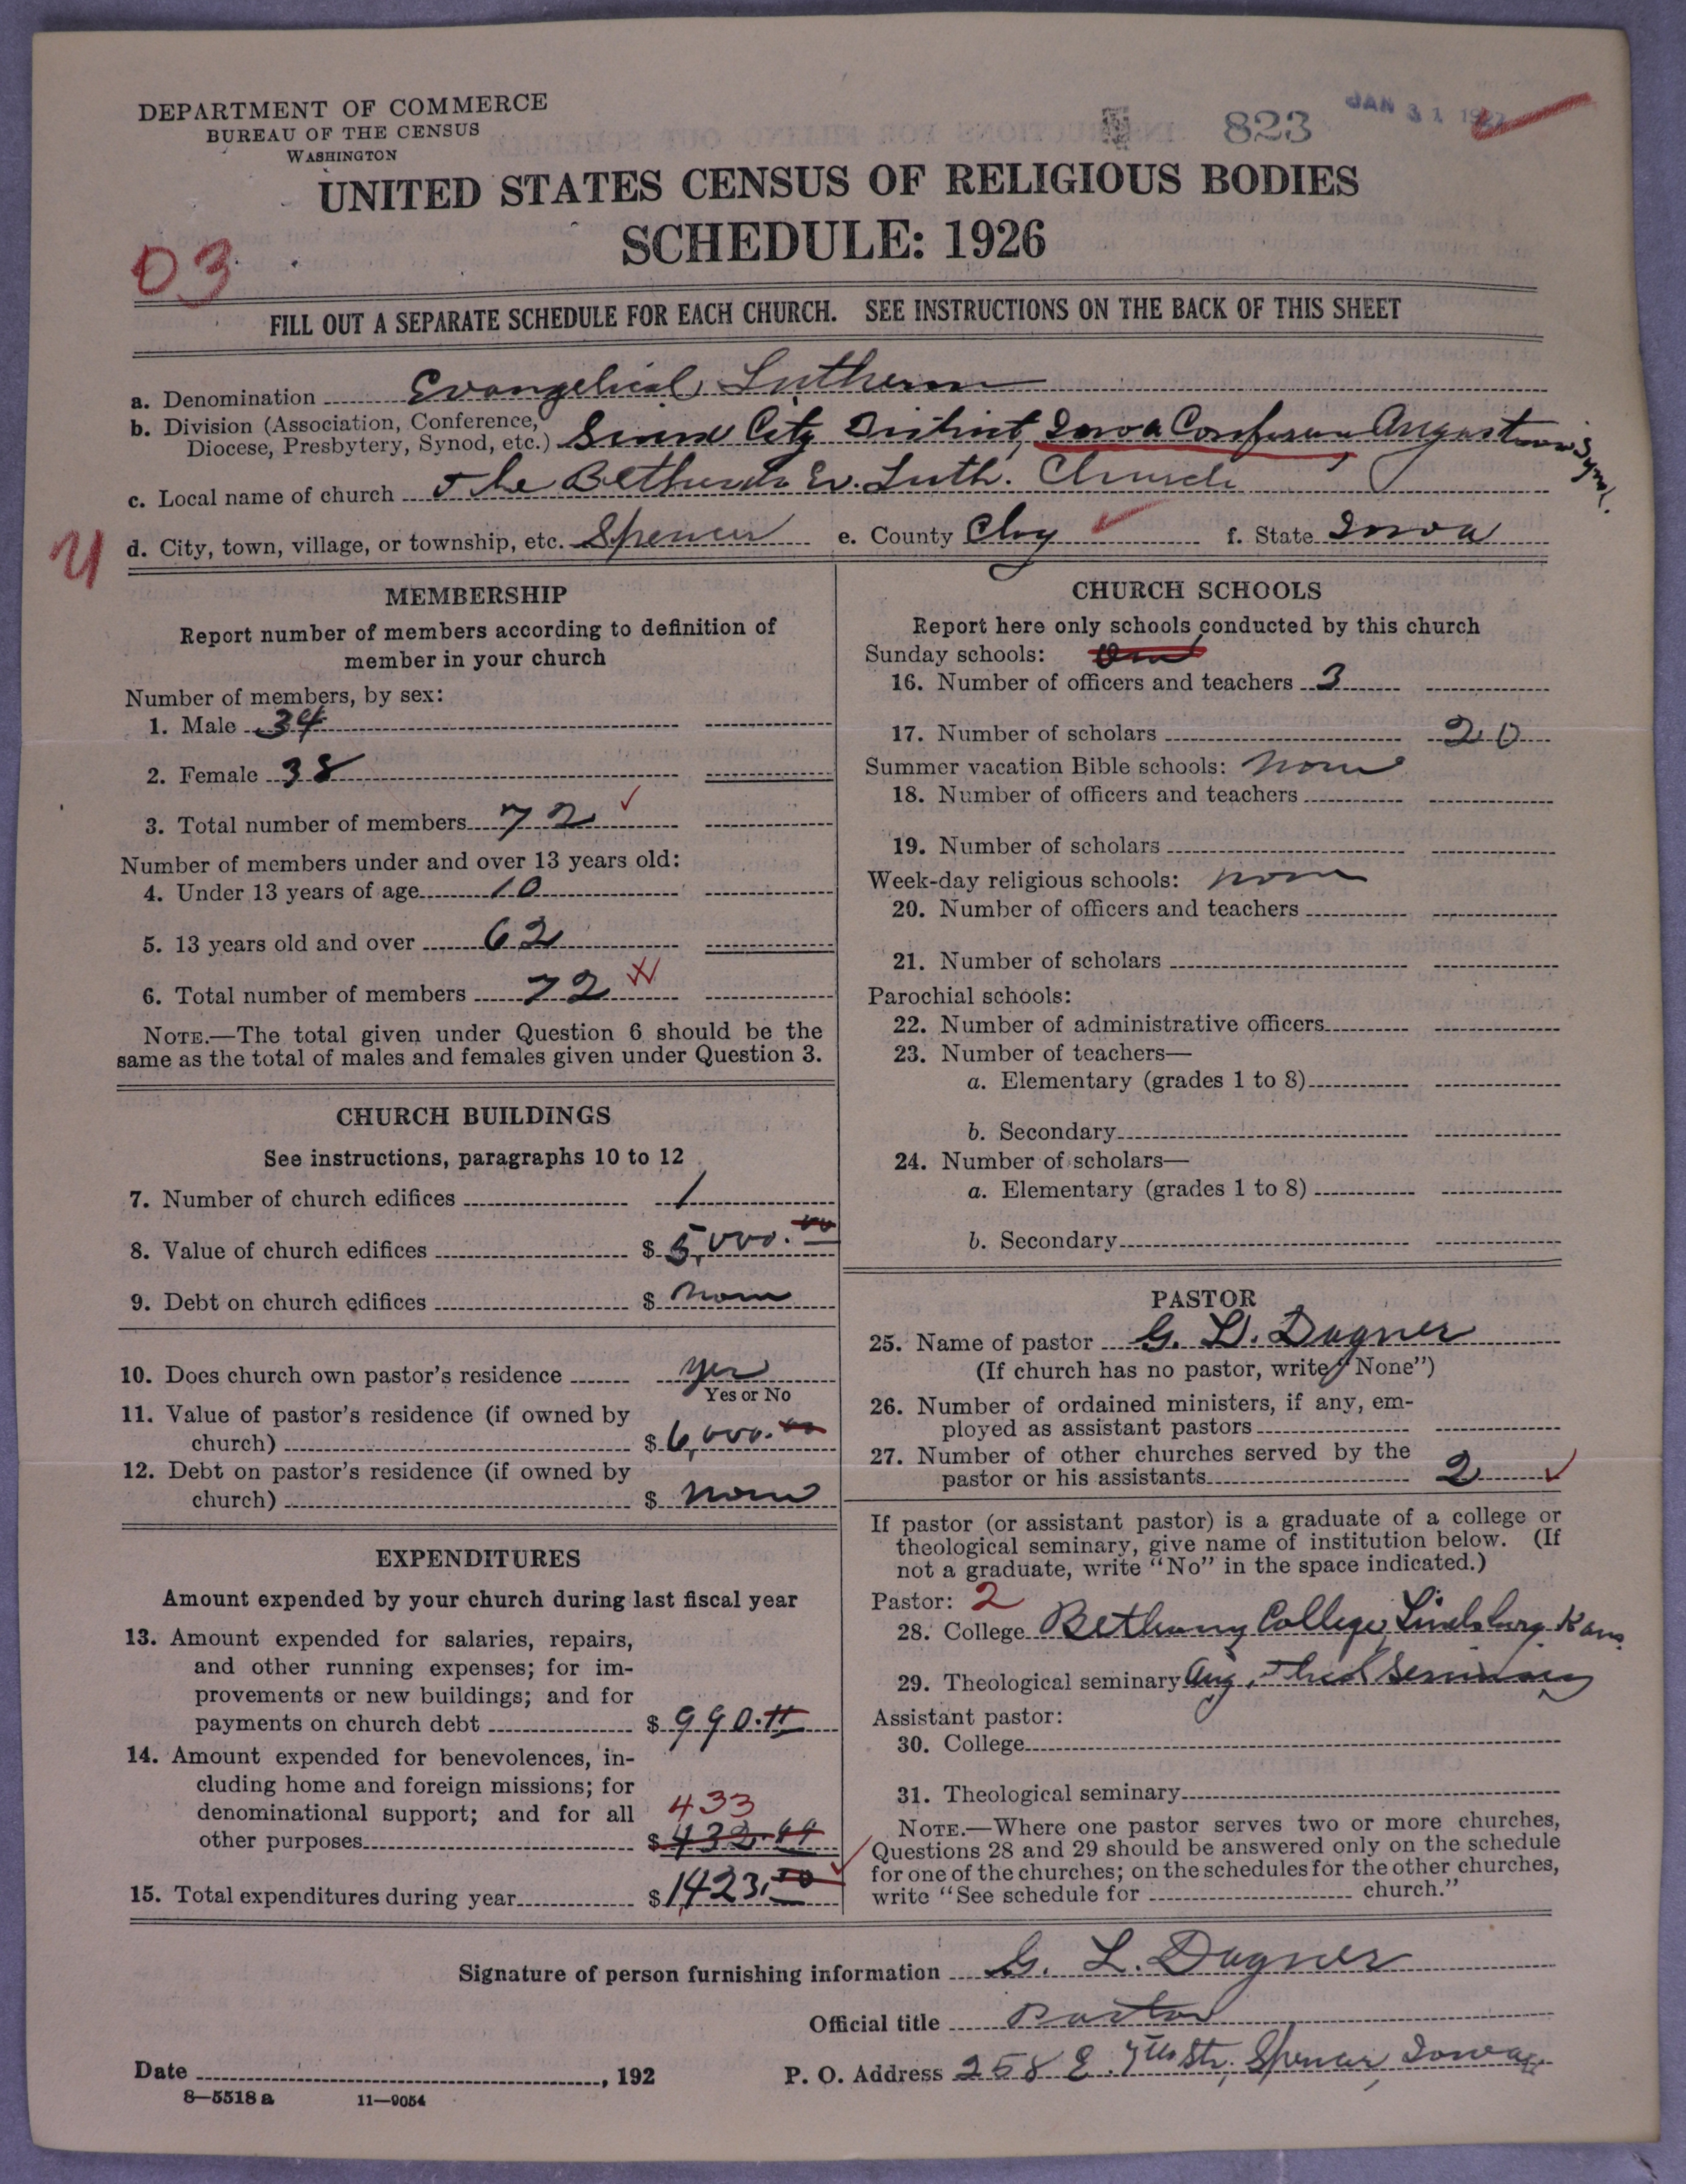 DEPARTMENT OF COMMERCE
BUREAU OF THE CENSUS
WASHINGTON
823
JAN 31 1927
UNITED STATES CENSUS OF RELIGIOUS BODIES
SCHEDULE: 1926
03
FILL OUT A SEPARATE SCHEDULE FOR EACH CHURCH. SEE INSTRUCTIONS ON THE BACK OF THIS SHEET
a. Denomination Evangelical Lutheran
b. Division (Association, Conference,
Diocese, Presbytery, Synod, etc.) Sioux City District, Iowa Conference Augustana Synod.
c. Local name of church The Bethesda Ev. Luth. Church
d. City, town, village, or township, etc. Spencer e. County Clay f. State Iowa
MEMBERSHIP
Report number of members according to definition of
member in your church
Number of members, by sex:
1. Male 34
2. Female 38
3. Total number of members 72
Number of members under and over 13 years old:
4. Under 13 years of age 10
5. 13 years old and over 62
6. Total number of members 72
NOTE.—The total given under Question 6 should be the
same as the total of males and females given under Question 3.
CHURCH BUILDINGS
See instructions, paragraphs 10 to 12
7. Number of church edifices 1
8. Value of church edifices $ 5,000.00
9. Debt on church edifices $ None
10. Does church own pastor's residence yes
Yes or No
11. Value of pastor's residence (if owned by
church) $ 6,000.00
12. Debt on pastor's residence (if owned by
church) $ None
EXPENDITURES
Amount expended by your church during last fiscal year
13. Amount expended for salaries, repairs,
and other running expenses; for im-
provements or new buildings; and for
payments on church debt $ 990.11
14. Amount expended for benevolences, in-
cluding home and foreign missions; for
denominational support; and for all 433
other purposes $
15. Total expenditures during year $ 1423.50
CHURCH SCHOOLS
Report here only schools conducted by this church
Sunday schools: One
16. Number of officers and teachers 3
17. Number of scholars 20
Summer vacation Bible schools: None
18. Number of officers and teachers
19. Number of scholars
Week-day religious schools: None
20. Number of officers and teachers
21. Number of scholars
Parochial schools:
22. Number of administrative officers
23. Number of teachers—
a. Elementary (grades 1 to 8)
b. Secondary
24. Number of scholars—
a. Elementary (grades 1 to 8)
b. Secondary
PASTOR
25. Name of pastor G. L. Dagner
(If church has no pastor, write "None")
26. Number of ordained ministers, if any, em-
ployed as assistant pastors
27. Number of other churches served by the
pastor or his assistants 2
If pastor (or assistant pastor) is a graduate of a college or
theological seminary, give name of institution below. (If
not a graduate, write "No" in the space indicated.)
Pastor: 2
28. College Bethany College, Lindsborg, Kans.
29. Theological seminary Aug. Theol Seminary
Assistant pastor:
30. College
31. Theological seminary
NOTE.—Where one pastor serves two or more churches,
Questions 28 and 29 should be answered only on the schedule
for one of the churches; on the schedules for the other churches,
write "See schedule for church."
Signature of person furnishing information G. L. Dagner
Official title Pastor
Date , 192
P. O. Address 258 E. 7th Str. Spencer, Iowa
8—5518 a 11—9054